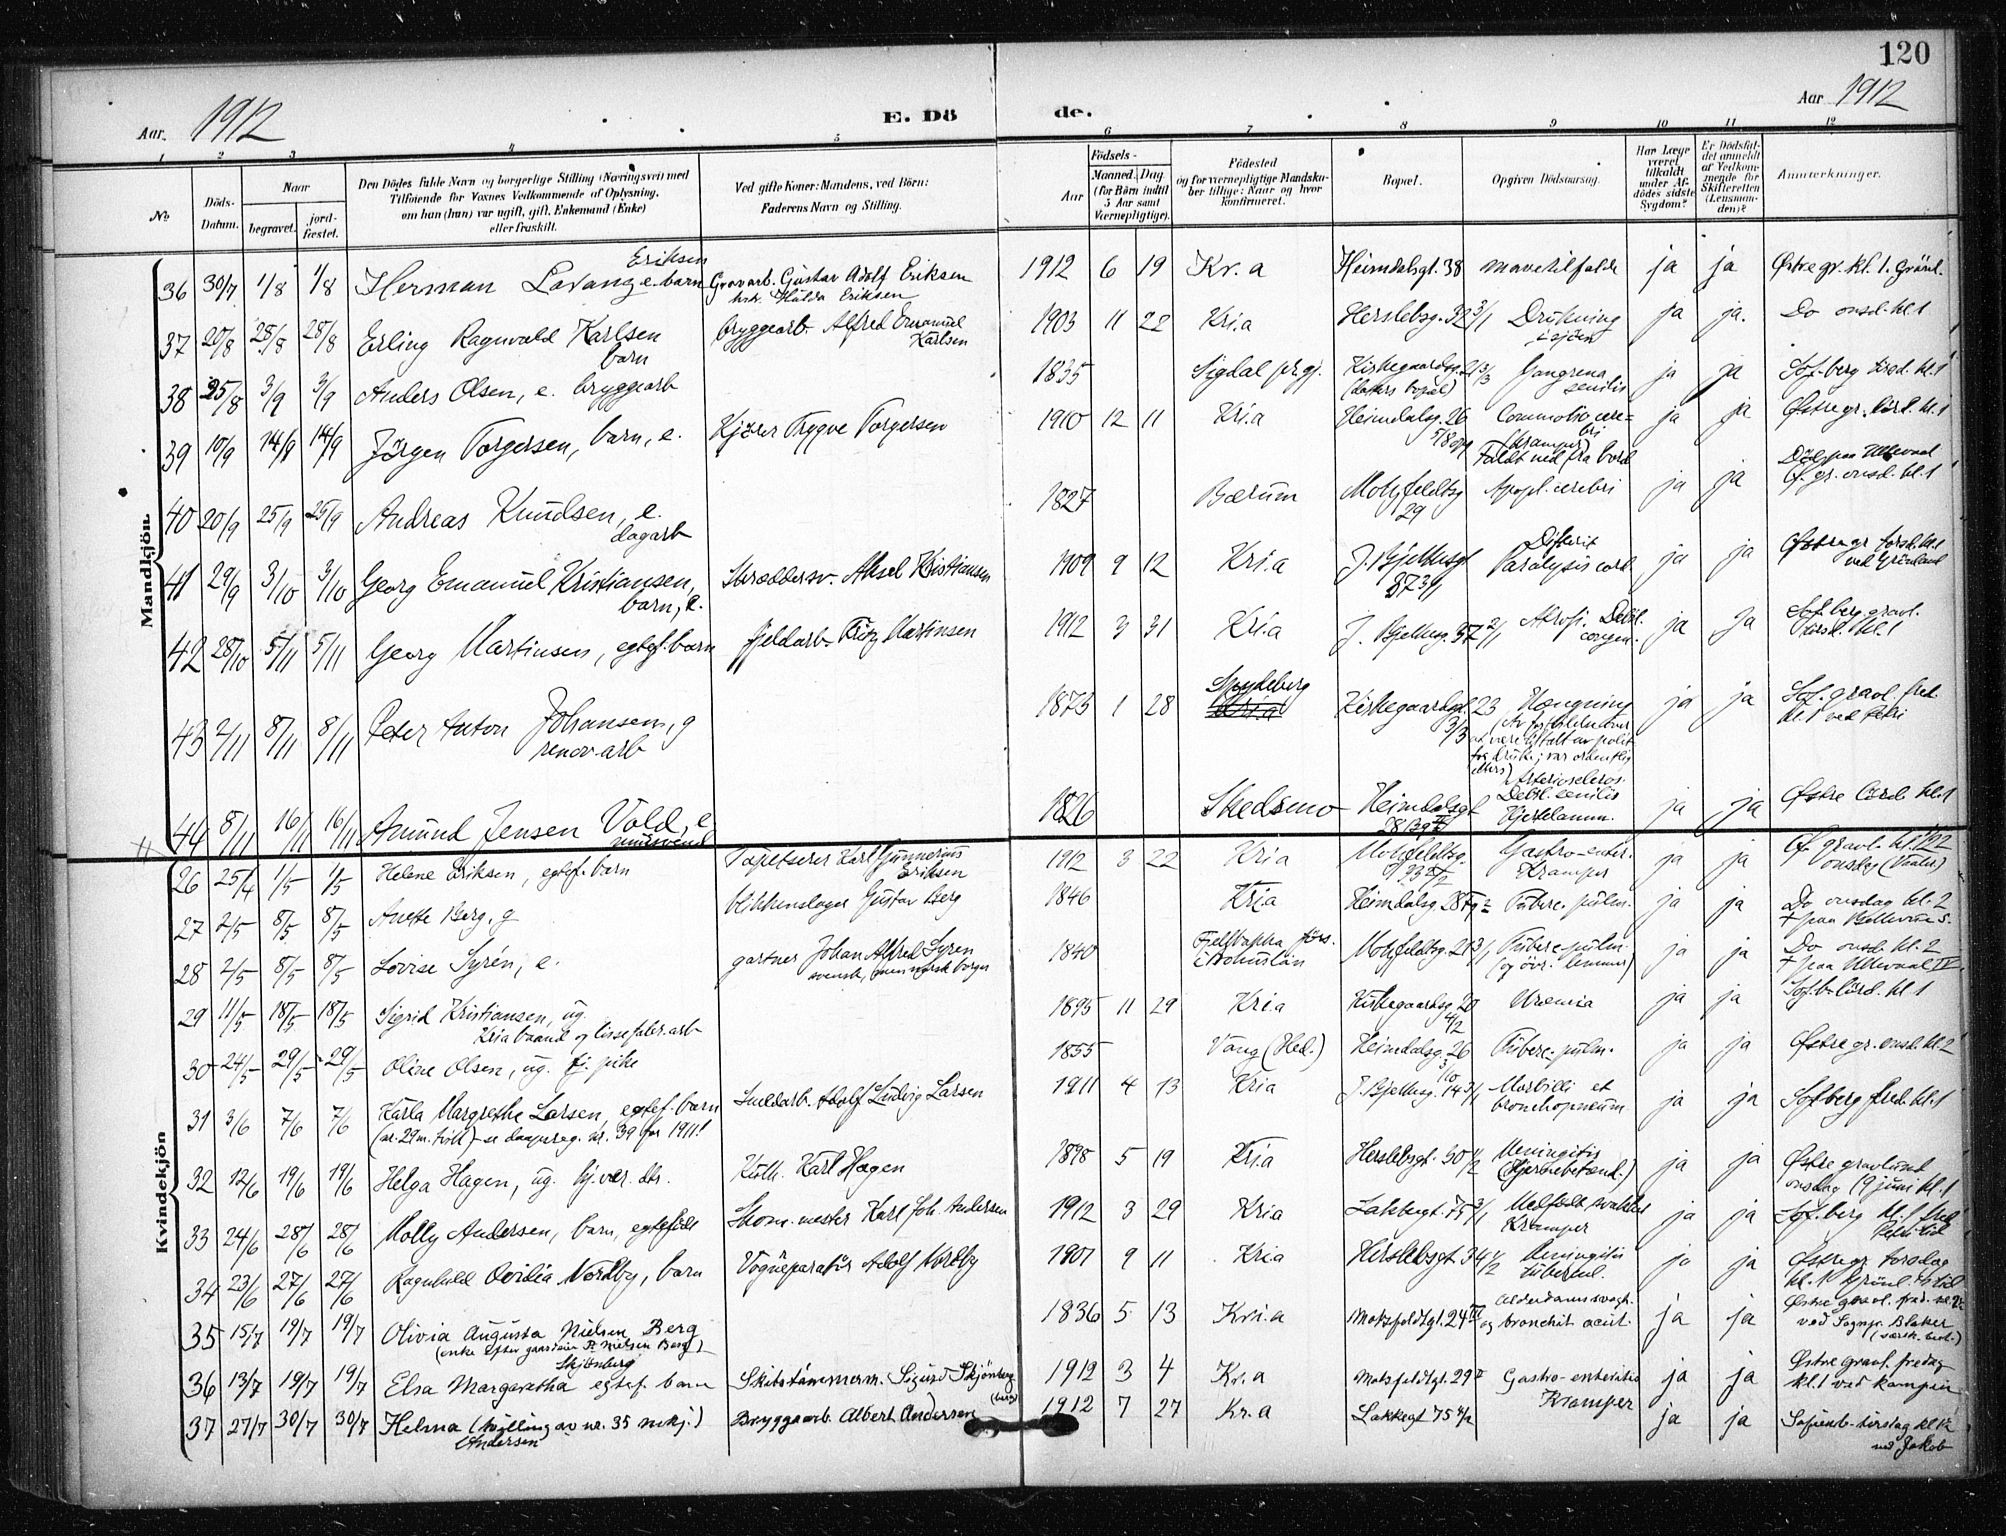 120
Aar. 1912 E. Dö de. Aar 1912
1 2 3 4 5 6 7 8 9 10 11 12
No
Döds-Datum.
Naar
begravet.
jord-fæstet.
Den Dödes fulde Navn og borgerlige Stilling (Næringsvei) med
Tilföiende for Voxnes Vedkommende af Oplysning.
om han (hun) var ugift, gift, Enkemand (Enke)
eller fraskilt.
Ved gifte Koner: Mandens, ved Börn:
Faderens Navn og Stilling.
Födsels-
Aar
Maaned. Dag
(for Börn indtil
5 Aar samt
Værnepligtige).
Födested
og for værnepligtige Mandsku-
ber tillige: Naar og hvor
konfirmeret.
Bopæl.
Opgiven Dödsaarsag.
Har Læge
været
tilkaldt
under Af-
dödes sidste
Sygdom?
Er Dödsfal-
det anmeldt
af Vedkom-
mende for
Skifteretten
(Lensman-
den)?
Anmærkninger.
Mandkjön.
36 30/7 1/8 1/8 Herman Lavang Eriksen e. barn Gravarb. Gustav Adolf Eriksen Hulda Eriksen 1912 6 19 Kr.a Heimdalsgt. 38 mavetilfælde ja ja Østre gr. kl. 1. Grönl.
37 20/8 28/8 28/8 Erling Ragnvald Karlsen barn bryggearb. Alfred Emanuel Karlsen 1903 11 22 Kri.a Herslebsg. 32 3/1 Drukning i sjöen ja ja. Do onsd. kl. 1
38 25/8 3/9 3/9 Anders Olsen, e. bryggearb 1835 Sigdal prgj. Kirkegaardsg. 21 3/3 (datters bopæl) Gangrena senilis ja ja Sof.berg tirsd. kl. 1
39 10/9 14/9 14/9 Jörgen Torgersen, barn, e. Kjörer Trygve Torgersen 1910 12 11 Kri.a Heimdalsg. 26 Commotio cerebri (kramper) Faldt ned fra bord ja ja Østre gr. lörd. kl. 1
40 20/9 25/9 25/9 Andreas Knudsen, e. dagarb 1827 Bærum Motzfeldtsg 29 Apopl. cerebri ja ja Död paa Ullevaal Ø. gr. onsd. kl. 1
41 29/9 3/10 3/10 Georg Emanuel Kristiansen, barn, e. Skræddersv. Aksel Kristiansen 1909 9 12 Kri.a J. Bjelkesgt 87 3/1 Difterit Paralysis cord. ja ja Østre gr torsd. kl. 1 ved Grönland
42 28/10 5/11 5/11 Georg Martinsen, egtef. barn fjeldarb. Fritz Martinsen 1912 3 31 Kri.a J. Bjelkesg. 57 2/1 Atrofi. Debil. congen. ja ja Sof.berg gravl. tirsd. kl. 1
43 2/11 8/11 8/11 Peter Anton Johansen, g renov.arb 1873 1 28 Spydeberg Kri.a Kirkegaardsgt. 23 3/3 Hængning ja ja Sof. gravl. fred. kl. 1 ved Petri
44 8/11 16/11 16/11 Amund Jensen Vold, e. mursvend 1826 Skedsmo Heimdalsgt Arterioscleros. Debil. senilis Hjertelamm. ja ja Østre lörd. kl. 1
Kvindekjön
26 25/4 1/5 1/5 Helene Eriksen, egtef. barn Tapetserer Karl Gunnerius Eriksen 1912 3 22 Kria Motzfeldtsg. Gastro-enter. Kramper ja ja Ø. gravl. onsdag
27 2/5 8/5 8/5 Anette Berg, g blikkenslager Gustav Berg 1846 Kria Heimdalsg. Tuberc. pulm. ja ja Do onsdag kl. 2 + paa
28 2/5 8/5 8/5 Lovise Syrén, e. gartner Johan Alfred Syren svensk, men norsk borger 1840 Fjellbakka förs. i Bohuslän Motzfeldtsg. 21 3/1 Tuberc. pulm. (og övr. lemmer) ja ja Do onsd. kl. 2 + paa Ullevaal IV
29 11/5 18/5 18/5 Sigrid Kristiansen, ug. Kria baand og lissefabr. arb 1895 11 29 Kria Kirkegaardsg. 20 4/2 Uræmia ja ja Sof.b. lörd. kl 1
30 24/5 29/5 29/5 Oline Olsen, ug. tj. pike 1855 Vang (Hed.) Heimdalsg. 26 Tuberc. pulm. ja ja Østre gr. onsd. kl. 2
31 3/6 7/6 7/6 Karla Margrethe Larsen, egtef. barn (nr. 29 m. tvill) - se daapsreg. nr. 39 for 1911! Adolf Ludvig Larsen 1911 4 13 Kria J. Bjelkesg. 14 3/1 Morbilli et bronchopneum. ja ja Sof.berg fred. kl. 1
32 12/6 19/6 19/6 Helga Hagen, ug. hj.vær. dtr. Kusk. Karl Hagen 1898 5 19 Kria Herslebsgt. 30 1/2 Meningitis (Hjernebetænd.) ja ja Østre gravlund onsdag 19 juni kl. 1
33 24/6 28/6 28/6 Molly Andersen, barn, egtefödt Skom.mester Karl Joh. Andersen 1912 3 29 Kria Lakkegt. 75 3/1 Medfödt svakhet Kramper ja ja Sof.berg kl. 1 fred
34 23/6 27/6 27/6 Ragnhild Ovidia Nordby, barn Adolf Nordby 1901 9 11 Kria Herslebsgt 34 4/2 Meningitis tubercul. ja ja Østre gr. torsdag kl. 1 Grönl.
35 15/7 19/7 19/7 Olivia Augusta Nielsen Berg (enke efter gaardeier P. Nielsen Berg) 1836 5 13 Kri.a Motzfeldtgt. 24 IV Alderdomssvagh. og bronchit acut. ja ja Østre gravl. fred. ved Sognpr. Blaker
36 13/7 19/7 19/7 Elsa Margaretha Skjönberg egtef. barn Skibstömmerm. Sigurd Skjönberg 1912 3 4 Kr.a Motzfeldtgt. 29 I Gastro-enteritis ja ja Østre gravl. fredag kl. 1 ved kampen
37 27/7 30/7 30/7 Helma (tvilling av nr. 35 mkj.) Andersen Bryggearb. Albert Andersen 1912 7 27 Kr.a Lakkegt 75 4/2 Kramper ja ja Sofienb. tirsdag ved Jakob